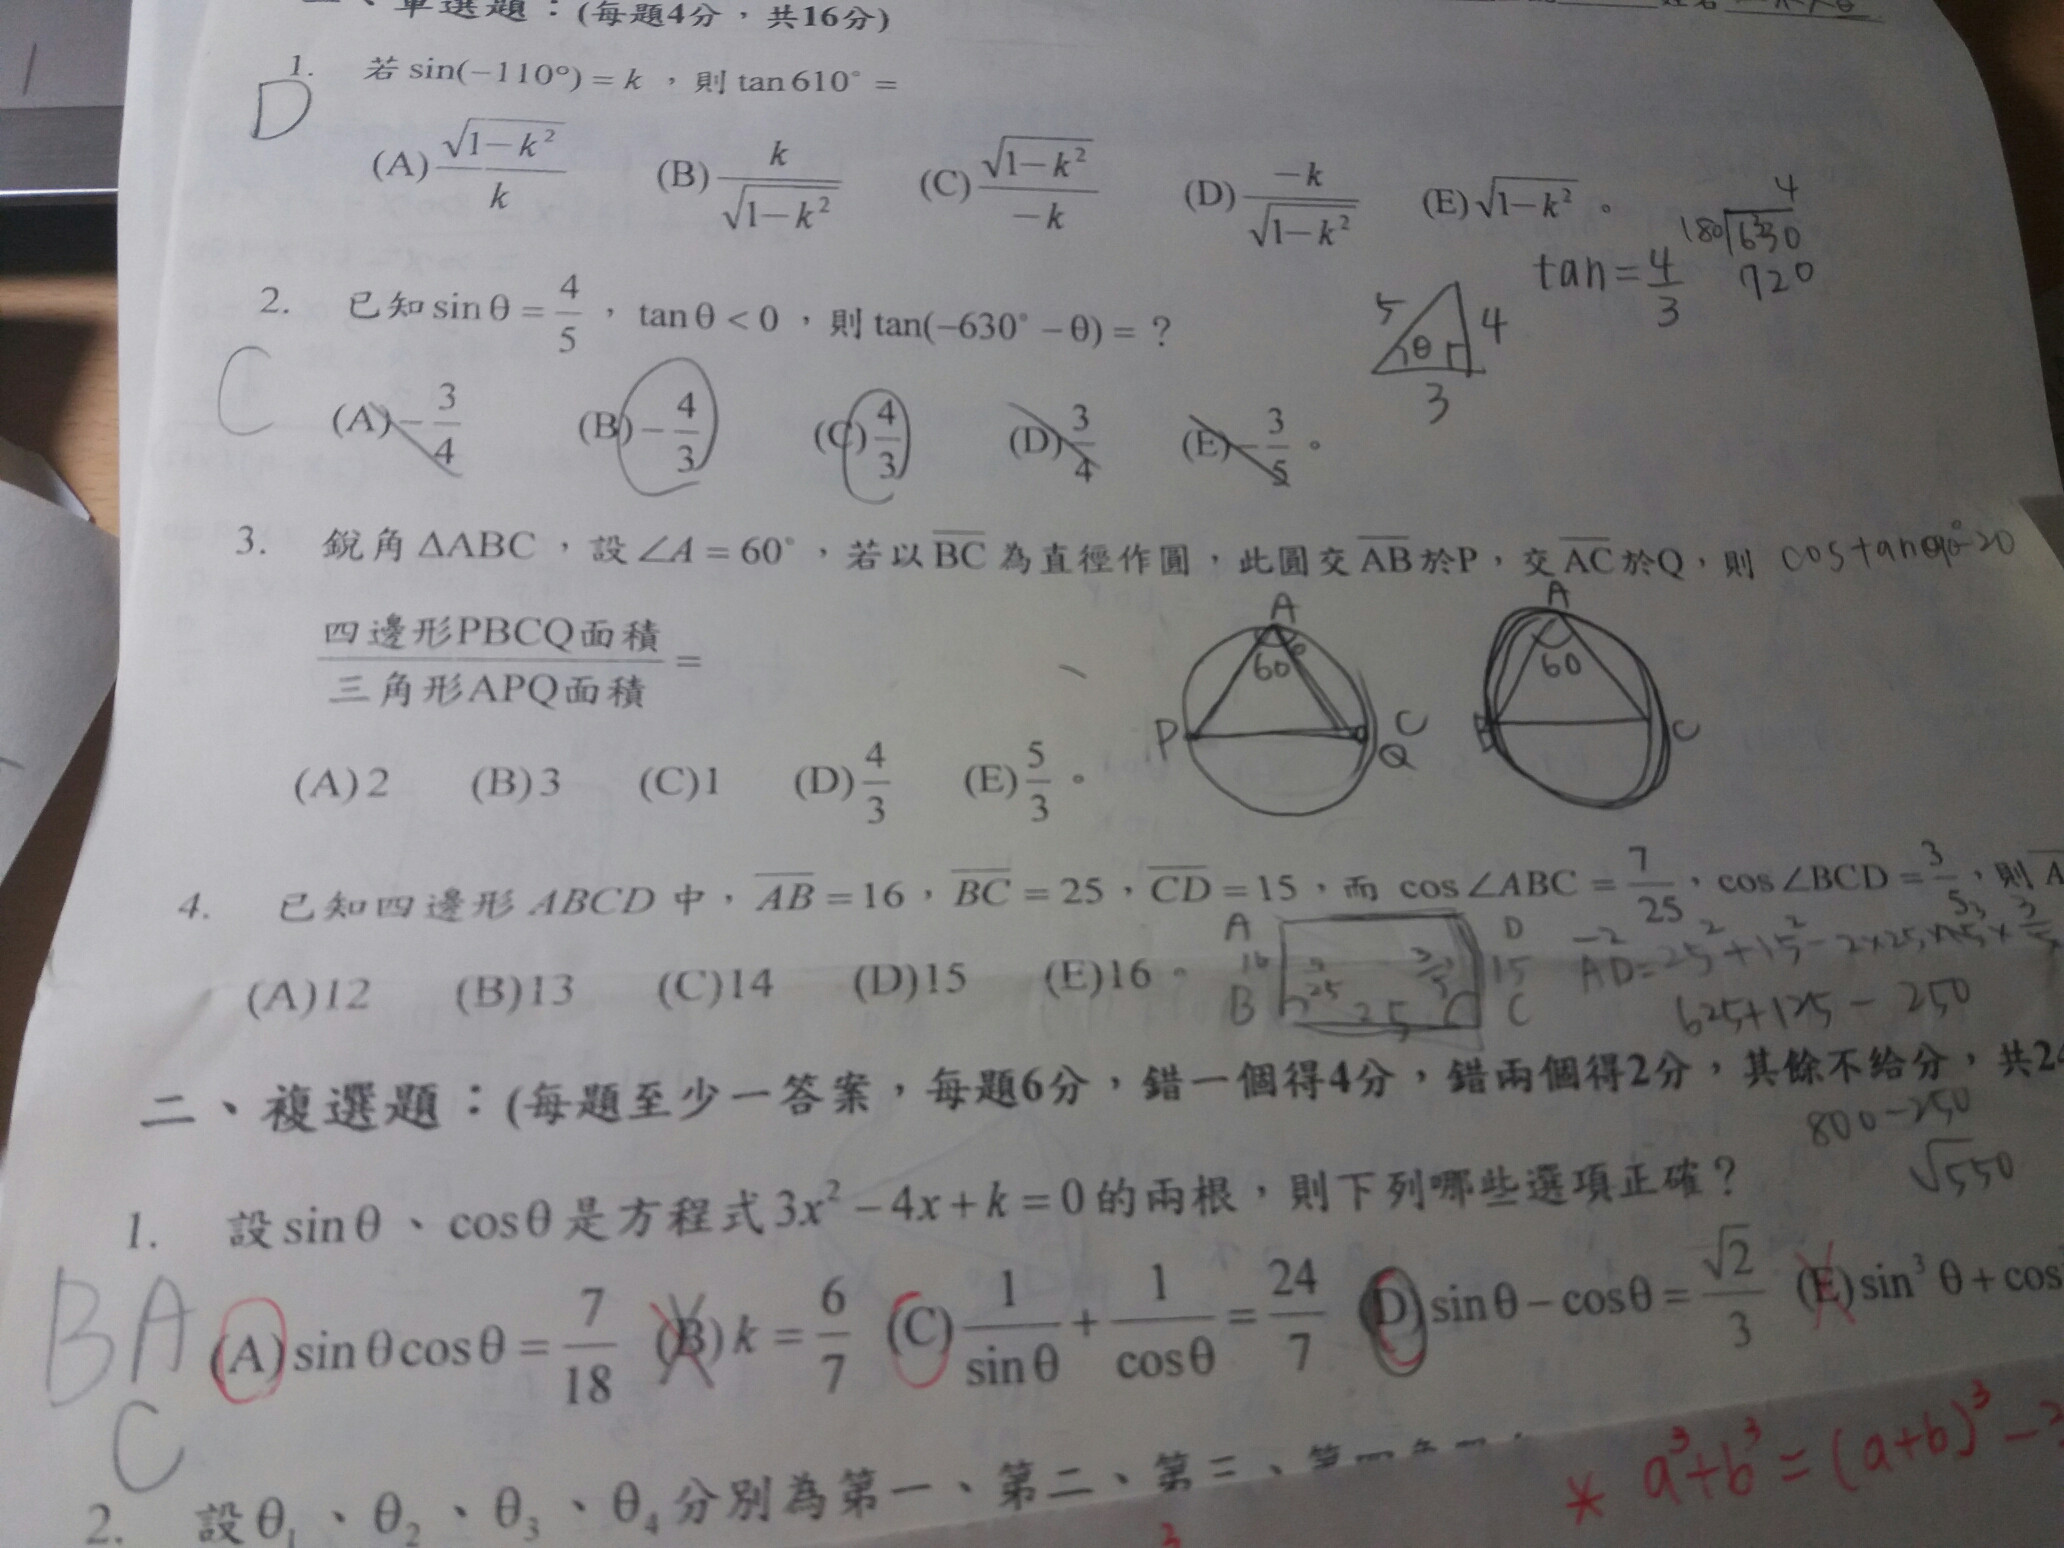 單選題：(每題4分，共16分)
D
1. 若 sin(−110°) = k ，則 tan 610° =
(A) √(1−k²)/k (B) k/√(1−k²) (C) √(1−k²)/−k (D) −k/√(1−k²) (E) √(1−k²) 。
4
180 630
720
tan = 4/3
5 4 θ 3
2. 已知 sin θ = 4/5 ，tan θ < 0 ，則 tan(−630° − θ) = ?
C
(A) −3/4 (B) −4/3 (C) 4/3 (D) 3/4 (E) −3/5 。
3. 銳角 ΔABC ，設 ∠A = 60° ，若以 BC 為直徑作圓，此圓交 AB 於P，交 AC 於Q，則
四邊形PBCQ面積/三角形APQ面積 =
A 60° P C Q
A 60 C
(A) 2 (B) 3 (C) 1 (D) 4/3 (E) 5/3 。
4. 已知四邊形 ABCD 中，AB = 16，BC = 25，CD = 15，而 cos ∠ABC = 7/25，cos ∠BCD = 3/5，則
(A)12 (B)13 (C)14 (D)15 (E)16 。
A D
16 15
B 25 C
AD² = 25² + 15² − 2×25×15×3/5
625+125 − 250
800−250
√550
二、複選題：(每題至少一答案，每題6分，錯一個得4分，錯兩個得2分，其餘不給分，共2
1. 設 sin θ 、 cos θ 是方程式 3x² − 4x + k = 0 的兩根，則下列哪些選項正確？
BA
C
(A) sin θ cos θ = 7/18 (B) k = 6/7 (C) 1/sin θ + 1/cos θ = 24/7 (D) sin θ − cos θ = √2/3 (E) sin³ θ + cos
* a³+b³ = (a+b)³ −
2. 設 θ₁ 、 θ₂ 、 θ₃ 、 θ₄ 分別為第一、第二、第三、